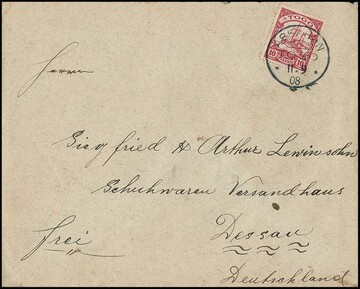 TOGO
10 10
11 9
08
Herrn
Siegfried & Arthur Lewinsohn
Schuhwaren Versandhaus
frei
Dessau
Deutschland